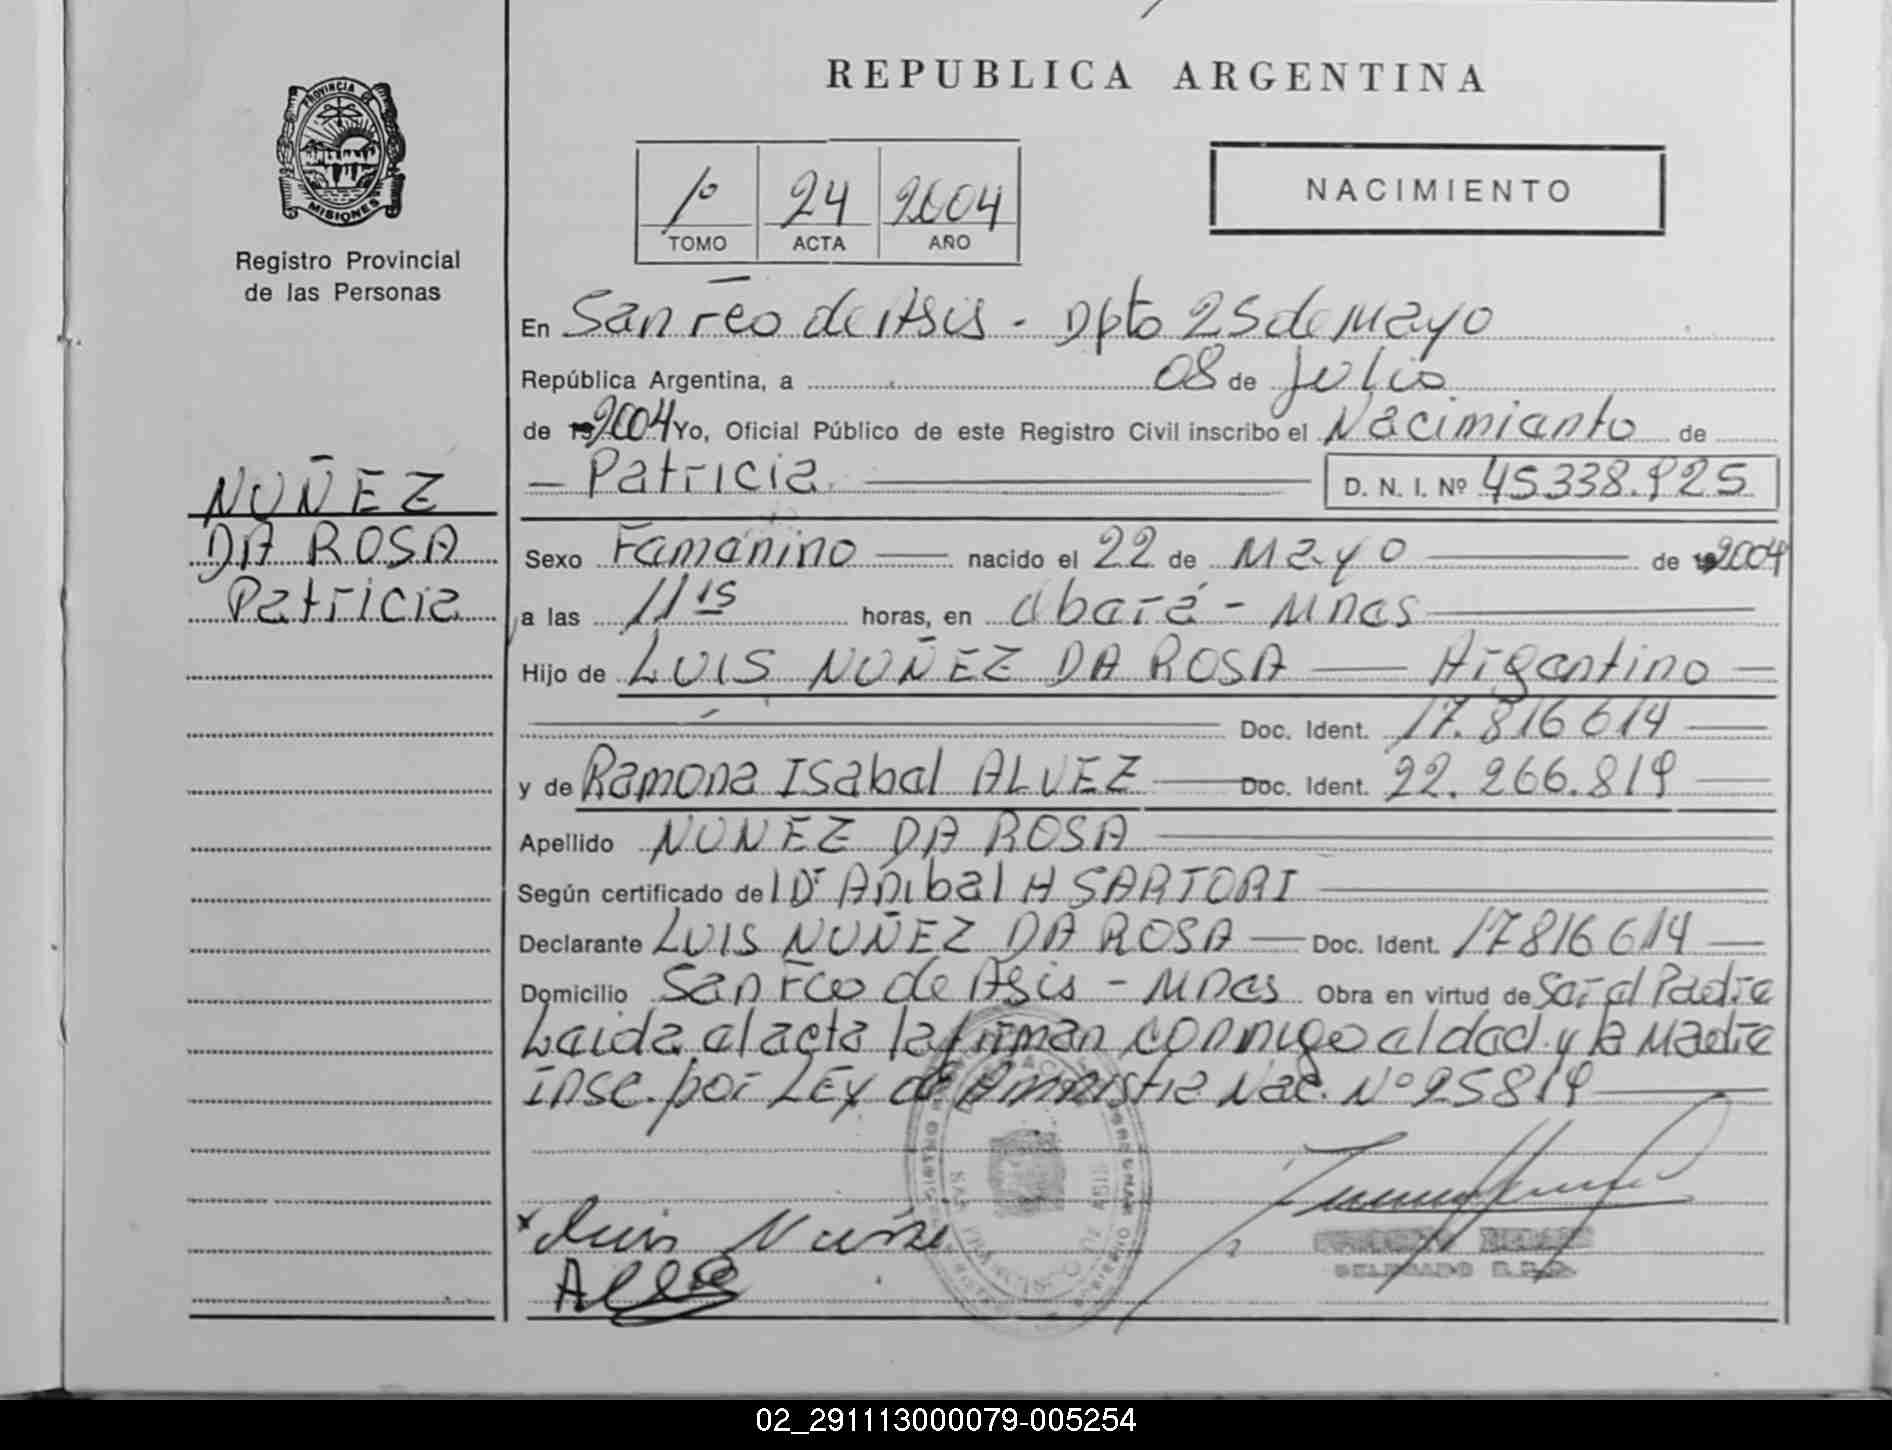 REPUBLICA ARGENTINA
PROVINCIA DE
MISIONES
Registro Provincial
de las Personas
1º 24 2004
TOMO ACTA AÑO
NACIMIENTO
En San Fco de Asis - Dpto 25 de Mayo
República Argentina, a 08 de Julio
de 19 2004 Yo, Oficial Público de este Registro Civil inscribo el Nacimiento de
Patricia D. N. I. Nº 45338.925
NUÑEZ
DA ROSA
Patricia
Sexo Femenino nacido el 22 de Mayo de 19 2004
a las 11 15 horas, en Oberá - Mnes
Hijo de LUIS NUÑEZ DA ROSA Argentino
Doc. Ident. 17.816614
y de Ramona Isabel ALVEZ Doc. Ident. 22.266.819
Apellido NUNEZ DA ROSA
Según certificado de Dr Anibal H SARTORI
Declarante LUIS NUÑEZ DA ROSA Doc. Ident. 17816614
Domicilio San Fco de Asis - Mnes Obra en virtud de Ser el Padre
Leida el acta la firman conmigo el dad. y la Madre
insc. por LEY de Amnistia Nac. Nº 25819
Luis Nuñe
DELEGADO R.P.P.
02_291113000079-005254